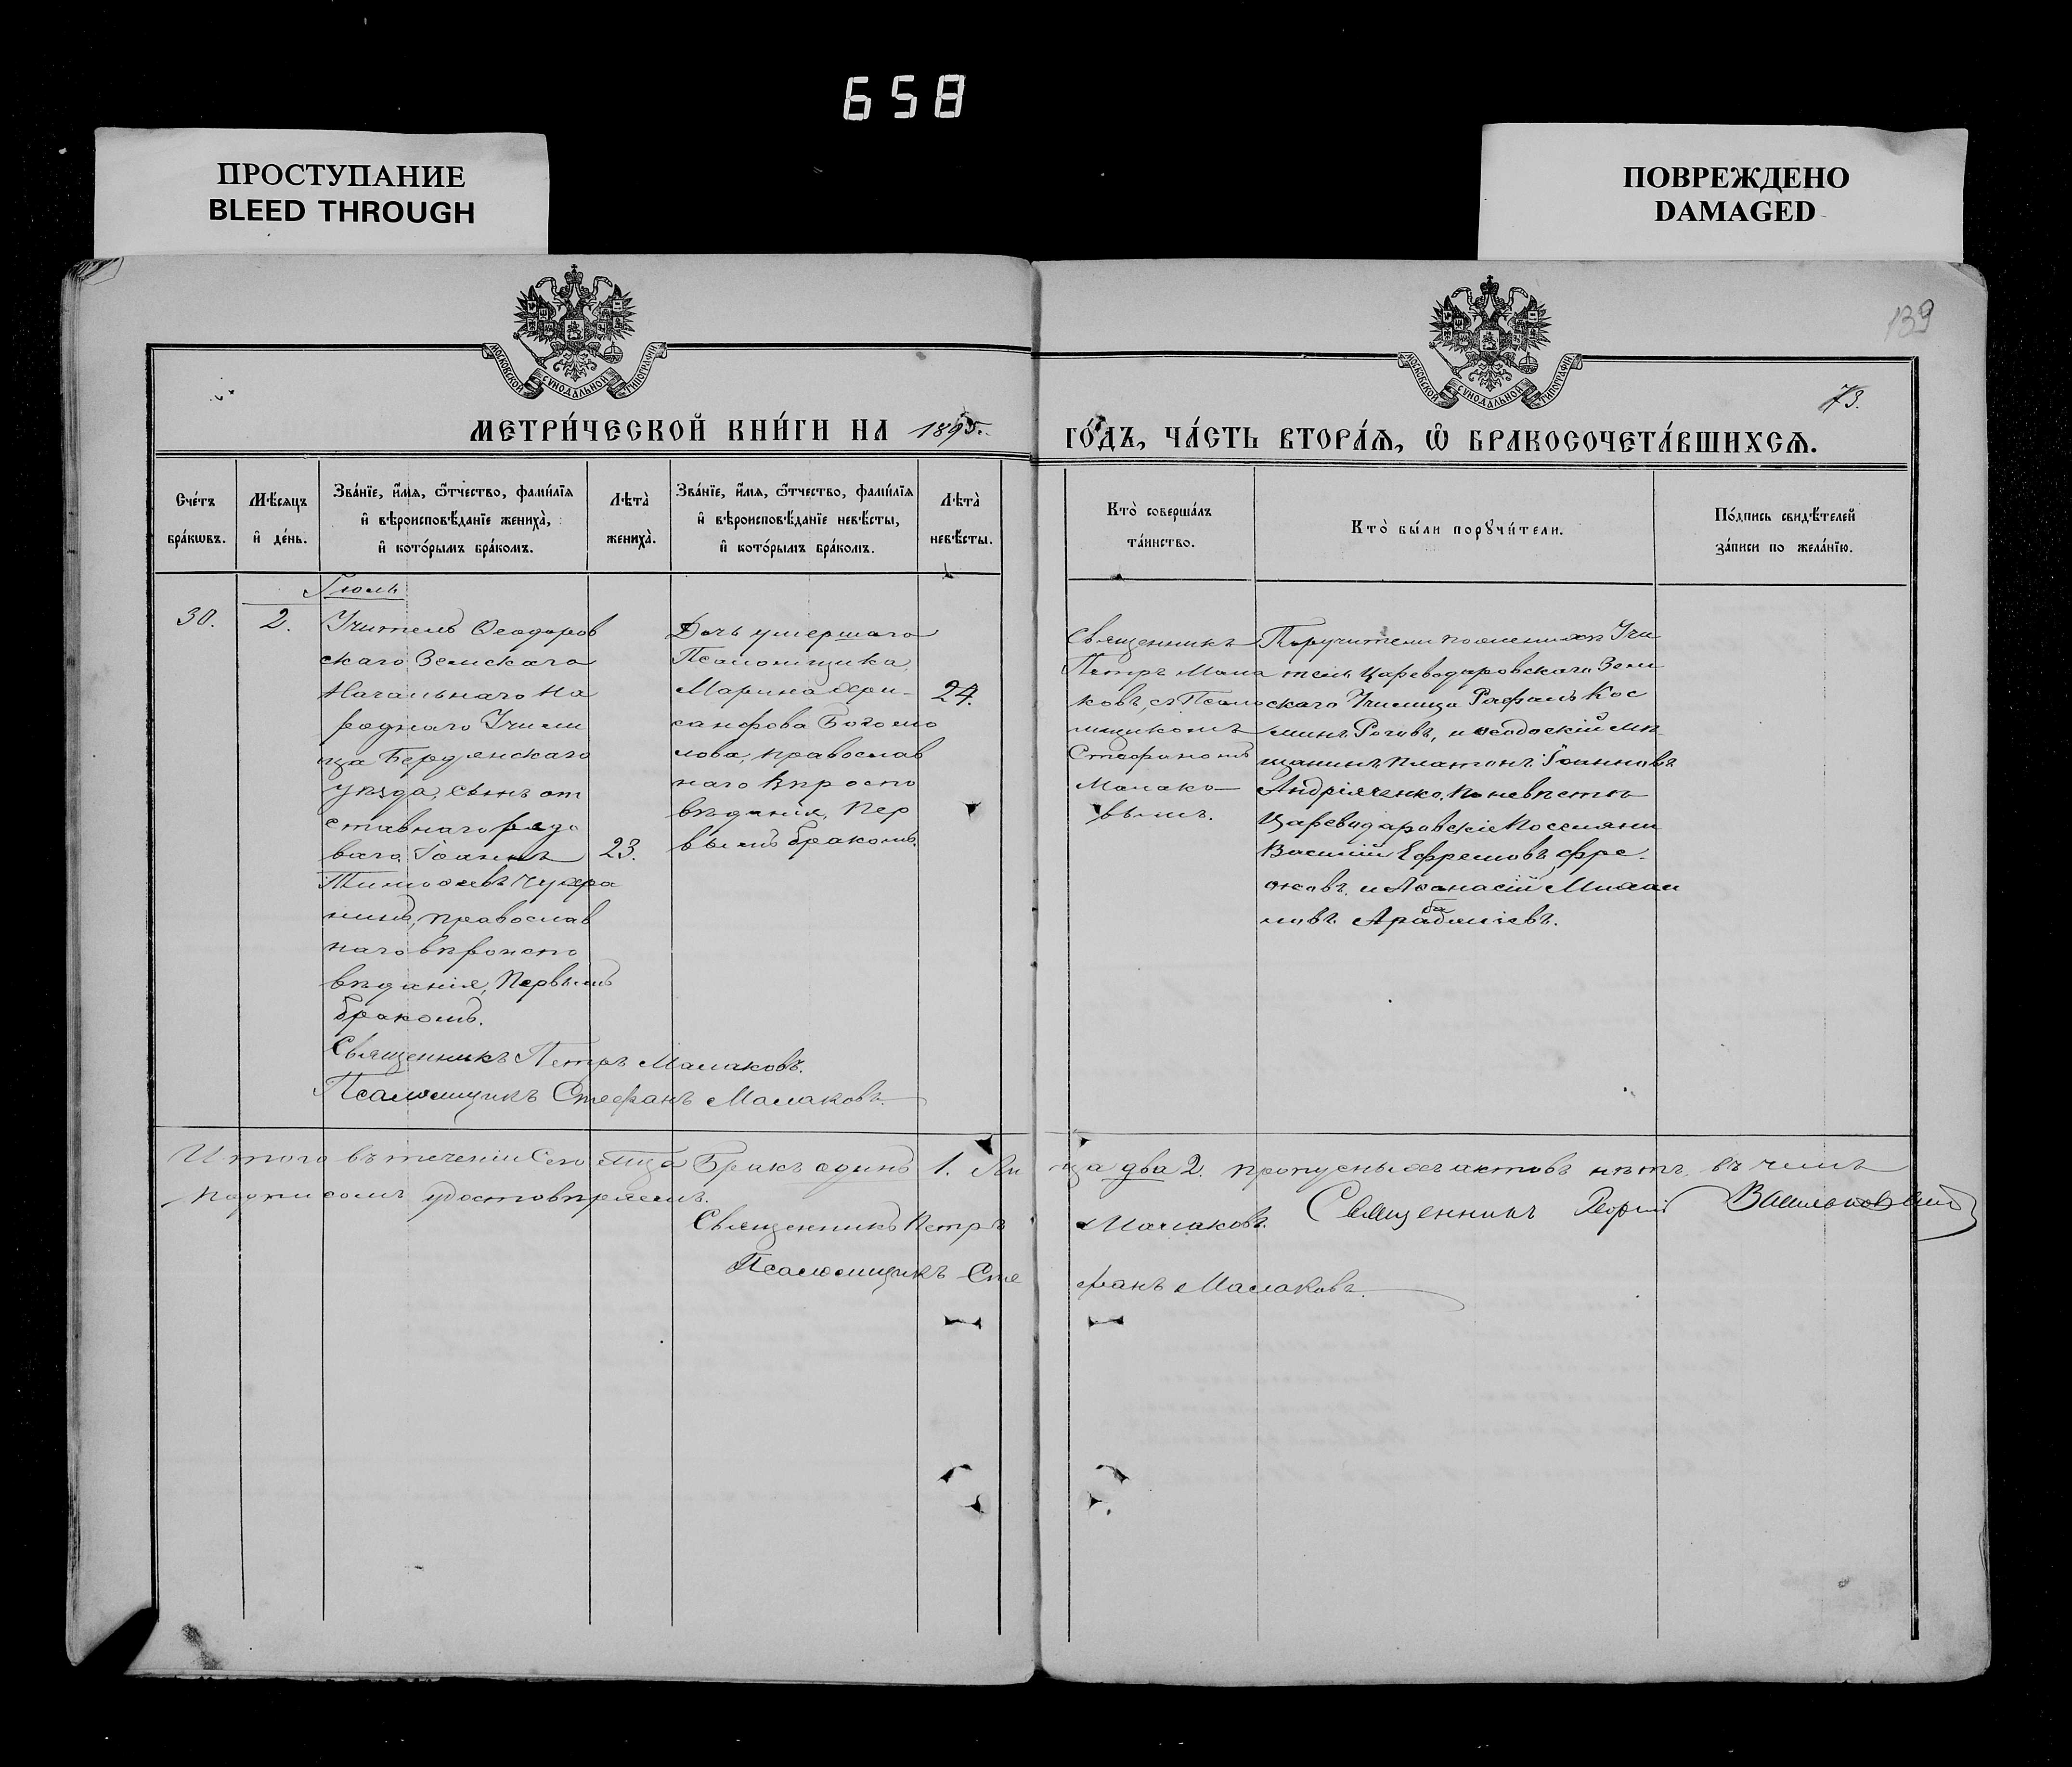 658
ПРОСТУПАНИЕ
BLEED THROUGH
ПОВРЕЖДЕНО
DAMAGED
МОСКОВСКОЙ СѴНОДАЛЬНОЙ ТИПОГРАФІИ
МОСКОВСКОЙ СѴНОДАЛЬНОЙ ТИПОГРАФІИ
139
73.
МЕТРИ́ЧЕСКОЙ КНИ́ГИ НА 1895.
ГО́ДЪ, ЧА́СТЬ ВТОРА́Ѧ, Ѽ БРАКОСОЧЕТА́ВШИХСѦ.
Сче́тъ
бра́кѡвъ.
Мѣ́сѧцъ
и҆ де́нь.
Зва́нїе, и҆́мѧ, ѻ҆́тчество, фами́лїѧ
и҆ вѣроисповѣ́данїе жениха̀,
и҆ кото́рымъ бра́комъ.
Лѣта̀
жениха̀.
Зва́нїе, и҆́мѧ, ѻ҆́тчество, фами́лїѧ
и҆ вѣроисповѣ́данїе невѣ́сты,
и҆ кото́рымъ бра́комъ.
Лѣта̀
невѣ́сты.
Кто̀ соверша́лъ
та́инство.
Кто̀ бы́ли порꙋчи́тели.
По́дпись свидѣ́телей
за́писи по жела́нїю.
Іюль
30.
2.
Учитель Ѳеодоров
скаго Земскаго
Начальнаго На
роднаго Учили
ща Бердянскаго
уѣзда, сынъ от
ставнаго рядо
ваго Іоаннъ
Тимоѳеевъ
православ
наго вѣроиспо
вѣданія, Первымъ
бракомъ.
23.
Дочь умершаго
Псаломщика
Марина
Богомо
лова, православ
наго вѣроиспо
вѣданія, Пер
вымъ бракомъ.
24.
Священникъ
Петръ Мала
ковъ, съ Псало
мщикомъ
Стефаномъ
Малако
вымъ.
Поручители по женихѣ Учи
тель Цареводаровскаго Зем
скаго Училища Рафаилъ Кос
минъ Роговъ, и Ѳеодосійскій мѣ
щанинъ Платонъ Іоанновъ
Андріяченко, По невѣстѣ
Цареводаровскіе Поселяни
Василій Ефремовъ
и Аѳанасій Михаи
ловъ
Священникъ Петръ Малаковъ.
Псаломщикъ Стефанъ Малаковъ.
Итого въ теченіи сего мца Бракъ одинъ 1. Ли ца два 2. пропусныхъ актовъ нѣтъ. въ чемъ
подписомъ удостовѣряемъ.
Священникъ Петръ Малаковъ. Священникъ Георгій
Псаломщикъ Сте фанъ Малаковъ.